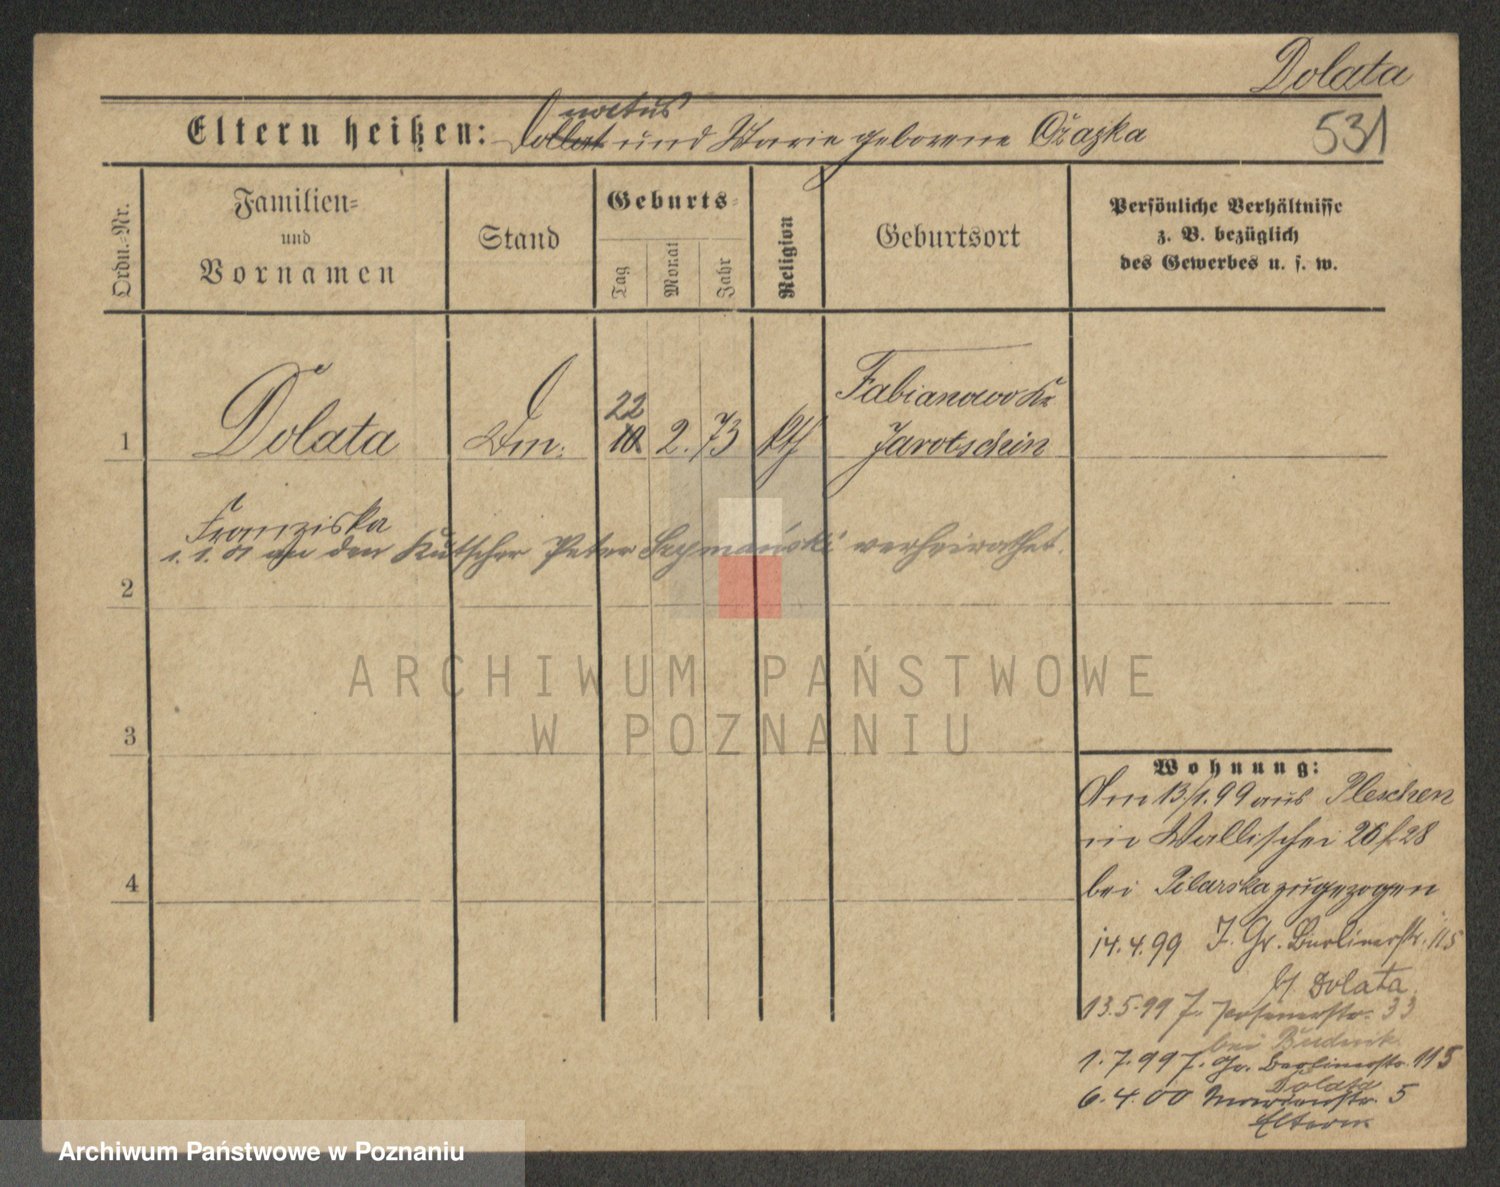 Dolata
531
Eltern heißen: und Marie geborene Ożazka
Ordn.-Nr.
Familien-
und
Vornamen
Stand
Geburts-
Tag
Monat
Jahr
Religion
Geburtsort
Persönliche Verhältnisse
z. B. bezüglich
des Gewerbes u. s. w.
22
Fabianowo Kr
1 Dolata 10 2. 73 kth Jarotschin
Franziska
an den Kutscher Peter Szymański verheirathet.
2
3
4
Wohnung:
Am 13/1. 99 aus Pleschen
in Wallischei 26/28
bei Pilarska zugezogen
14.4.99 J. Gr. Berlinerstr. 115
b/ Dolata
13.5.99 J. Posenerstr. 33
bei Budnik
1.7.99 J. Gr. Berlinerstr. 115
Dolata
6.4.00 5
Eltern
ARCHIWUM PAŃSTWOWE
W POZNANIU
Archiwum Państwowe w Poznaniu